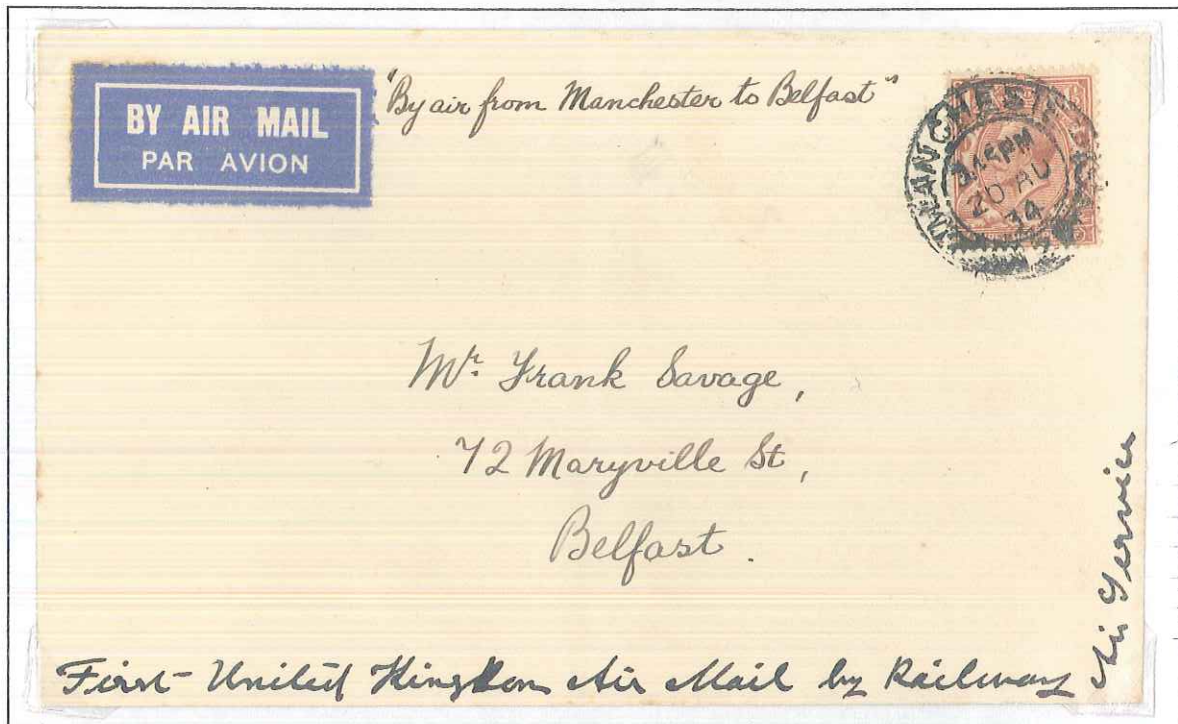 BY AIR MAIL
PAR AVION
"By air from Manchester to Belfast"
MANCHESTER
45PM
20 AU
34
Mr. Frank Savage,
72 Maryville St,
Belfast.
First - United Kingdom Air Mail by Railway
Air Service